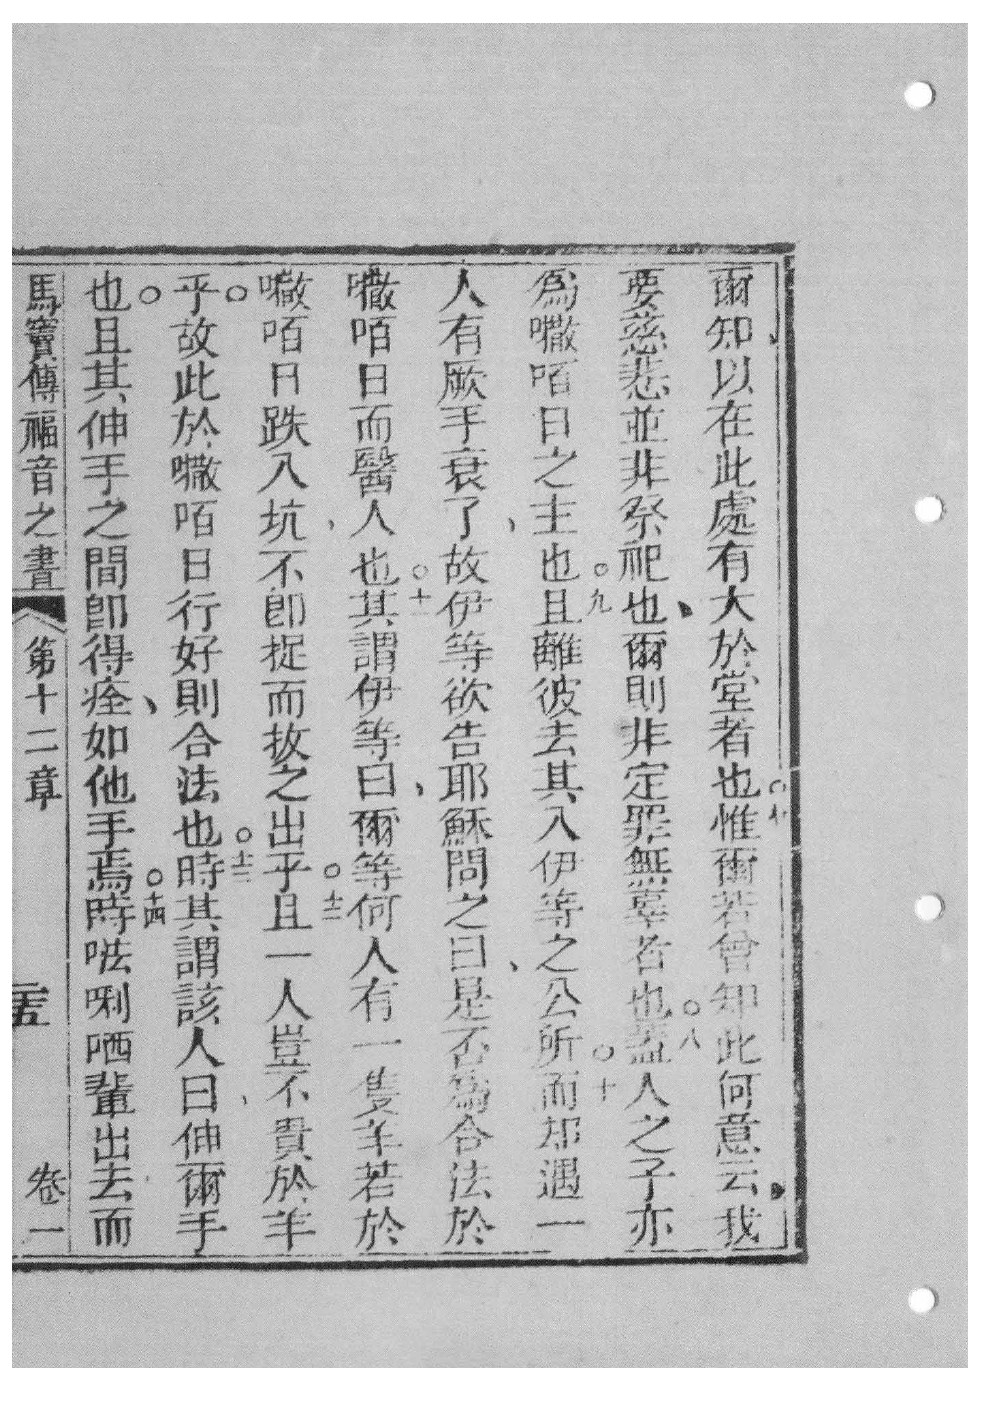 爾知以在此處有大於堂者也○七惟爾若曾知此何意云我
要慈悲並非祭祀也爾則非定罪無辜者也○八蓋人之子亦
為𡃤咟日之主也○九且離彼去其入伊等之公所○十而却遇一
人有厥手衰了故伊等欲告耶穌問之曰是否為合法於
𡃤咟日而醫人也○十一其謂伊等曰爾等何人有一隻羊若於
𡃤咟日跌入坑不卽捉而拔之出乎○十二且一人豈不貴於羊
乎故此於𡃤咟日行好則合法也○十三時其謂該人曰伸爾手
也且其伸手之間卽得痊如他手焉○十四時𠵽唎哂輩出去而
馬竇傳福音之書 第十二章 卷一